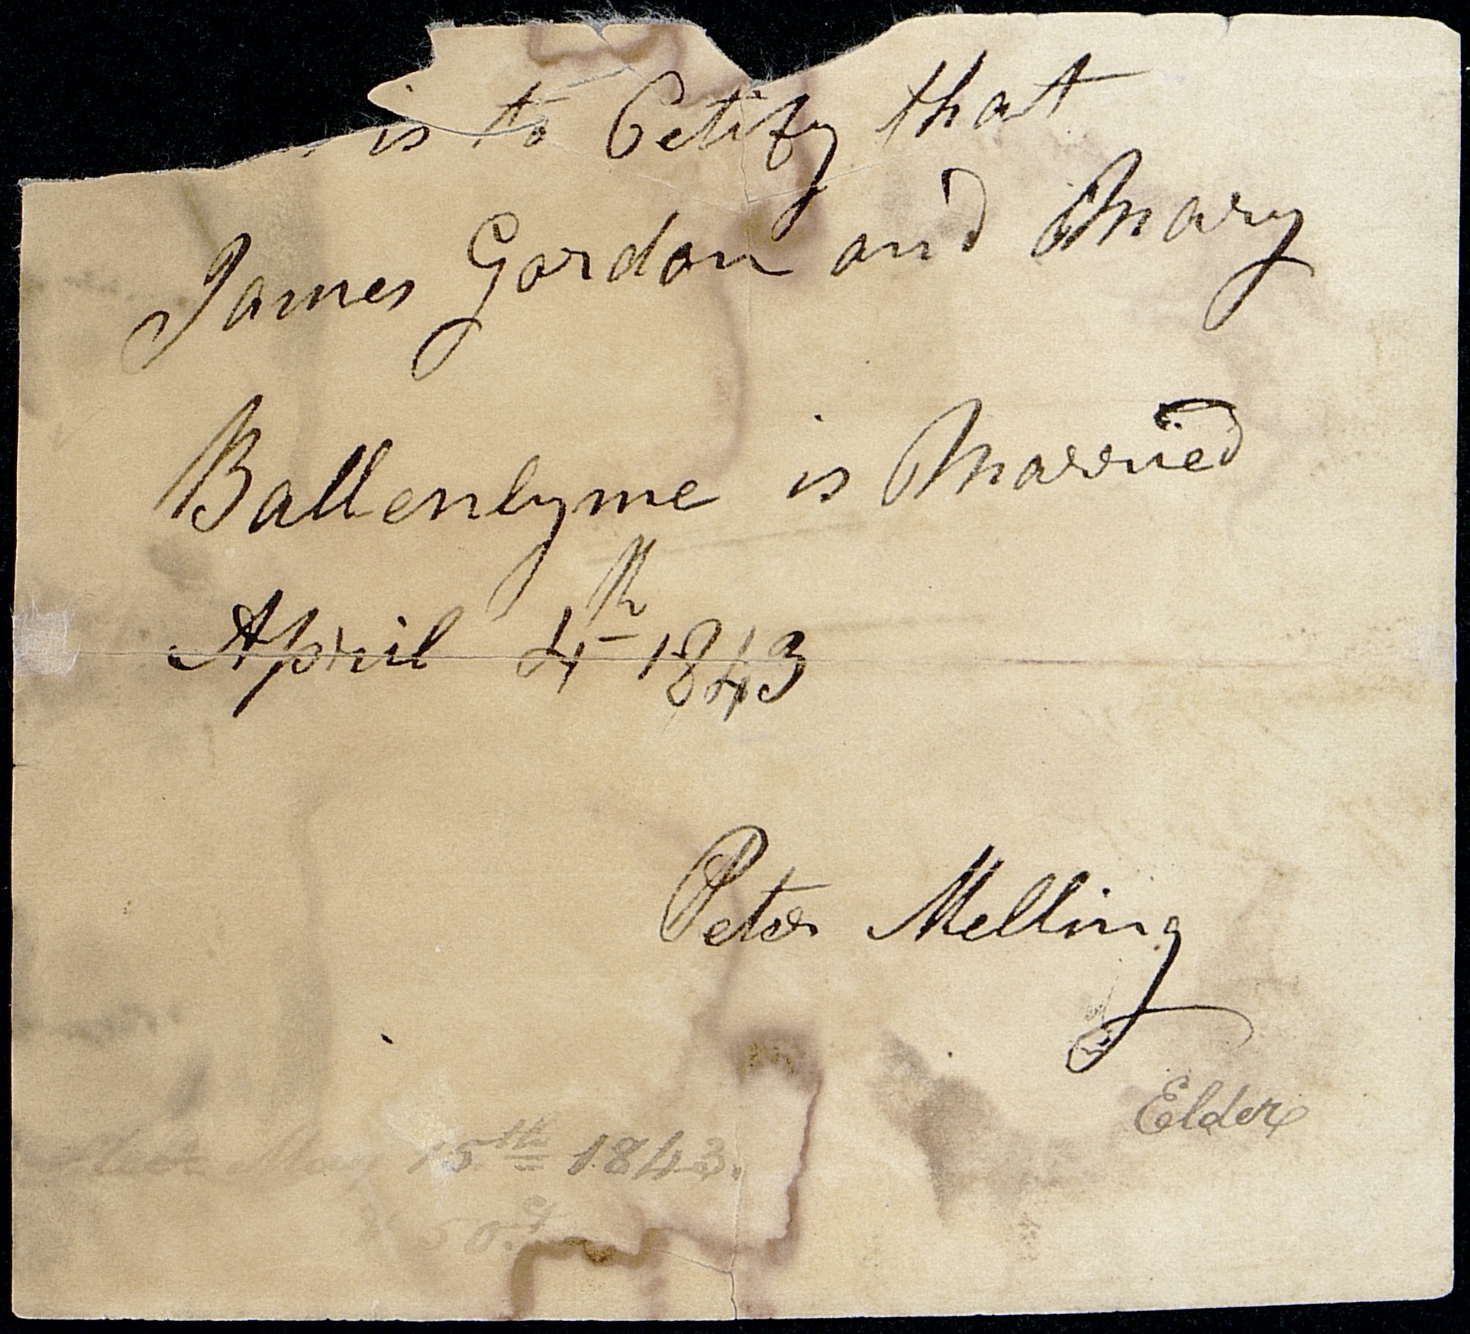 is to Cetify that
James Gordon and Mary
Ballenlyme is Married
April 4th 1843
Peter Melling
Elder
May 15th 1843.
50 ct